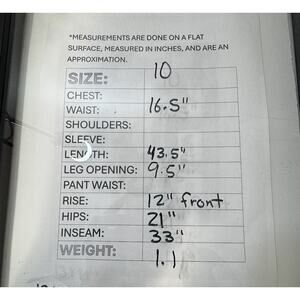 *MEASUREMENTS ARE DONE ON A FLAT
SURFACE, MEASURED IN INCHES, AND ARE AN
APPROXIMATION.
SIZE: 10
CHEST:
WAIST: 16.5"
SHOULDERS:
SLEEVE:
LENGTH: 43.5"
LEG OPENING: 9.5"
PANT WAIST:
RISE: 12" front
HIPS: 21"
INSEAM: 33"
WEIGHT: 1.1